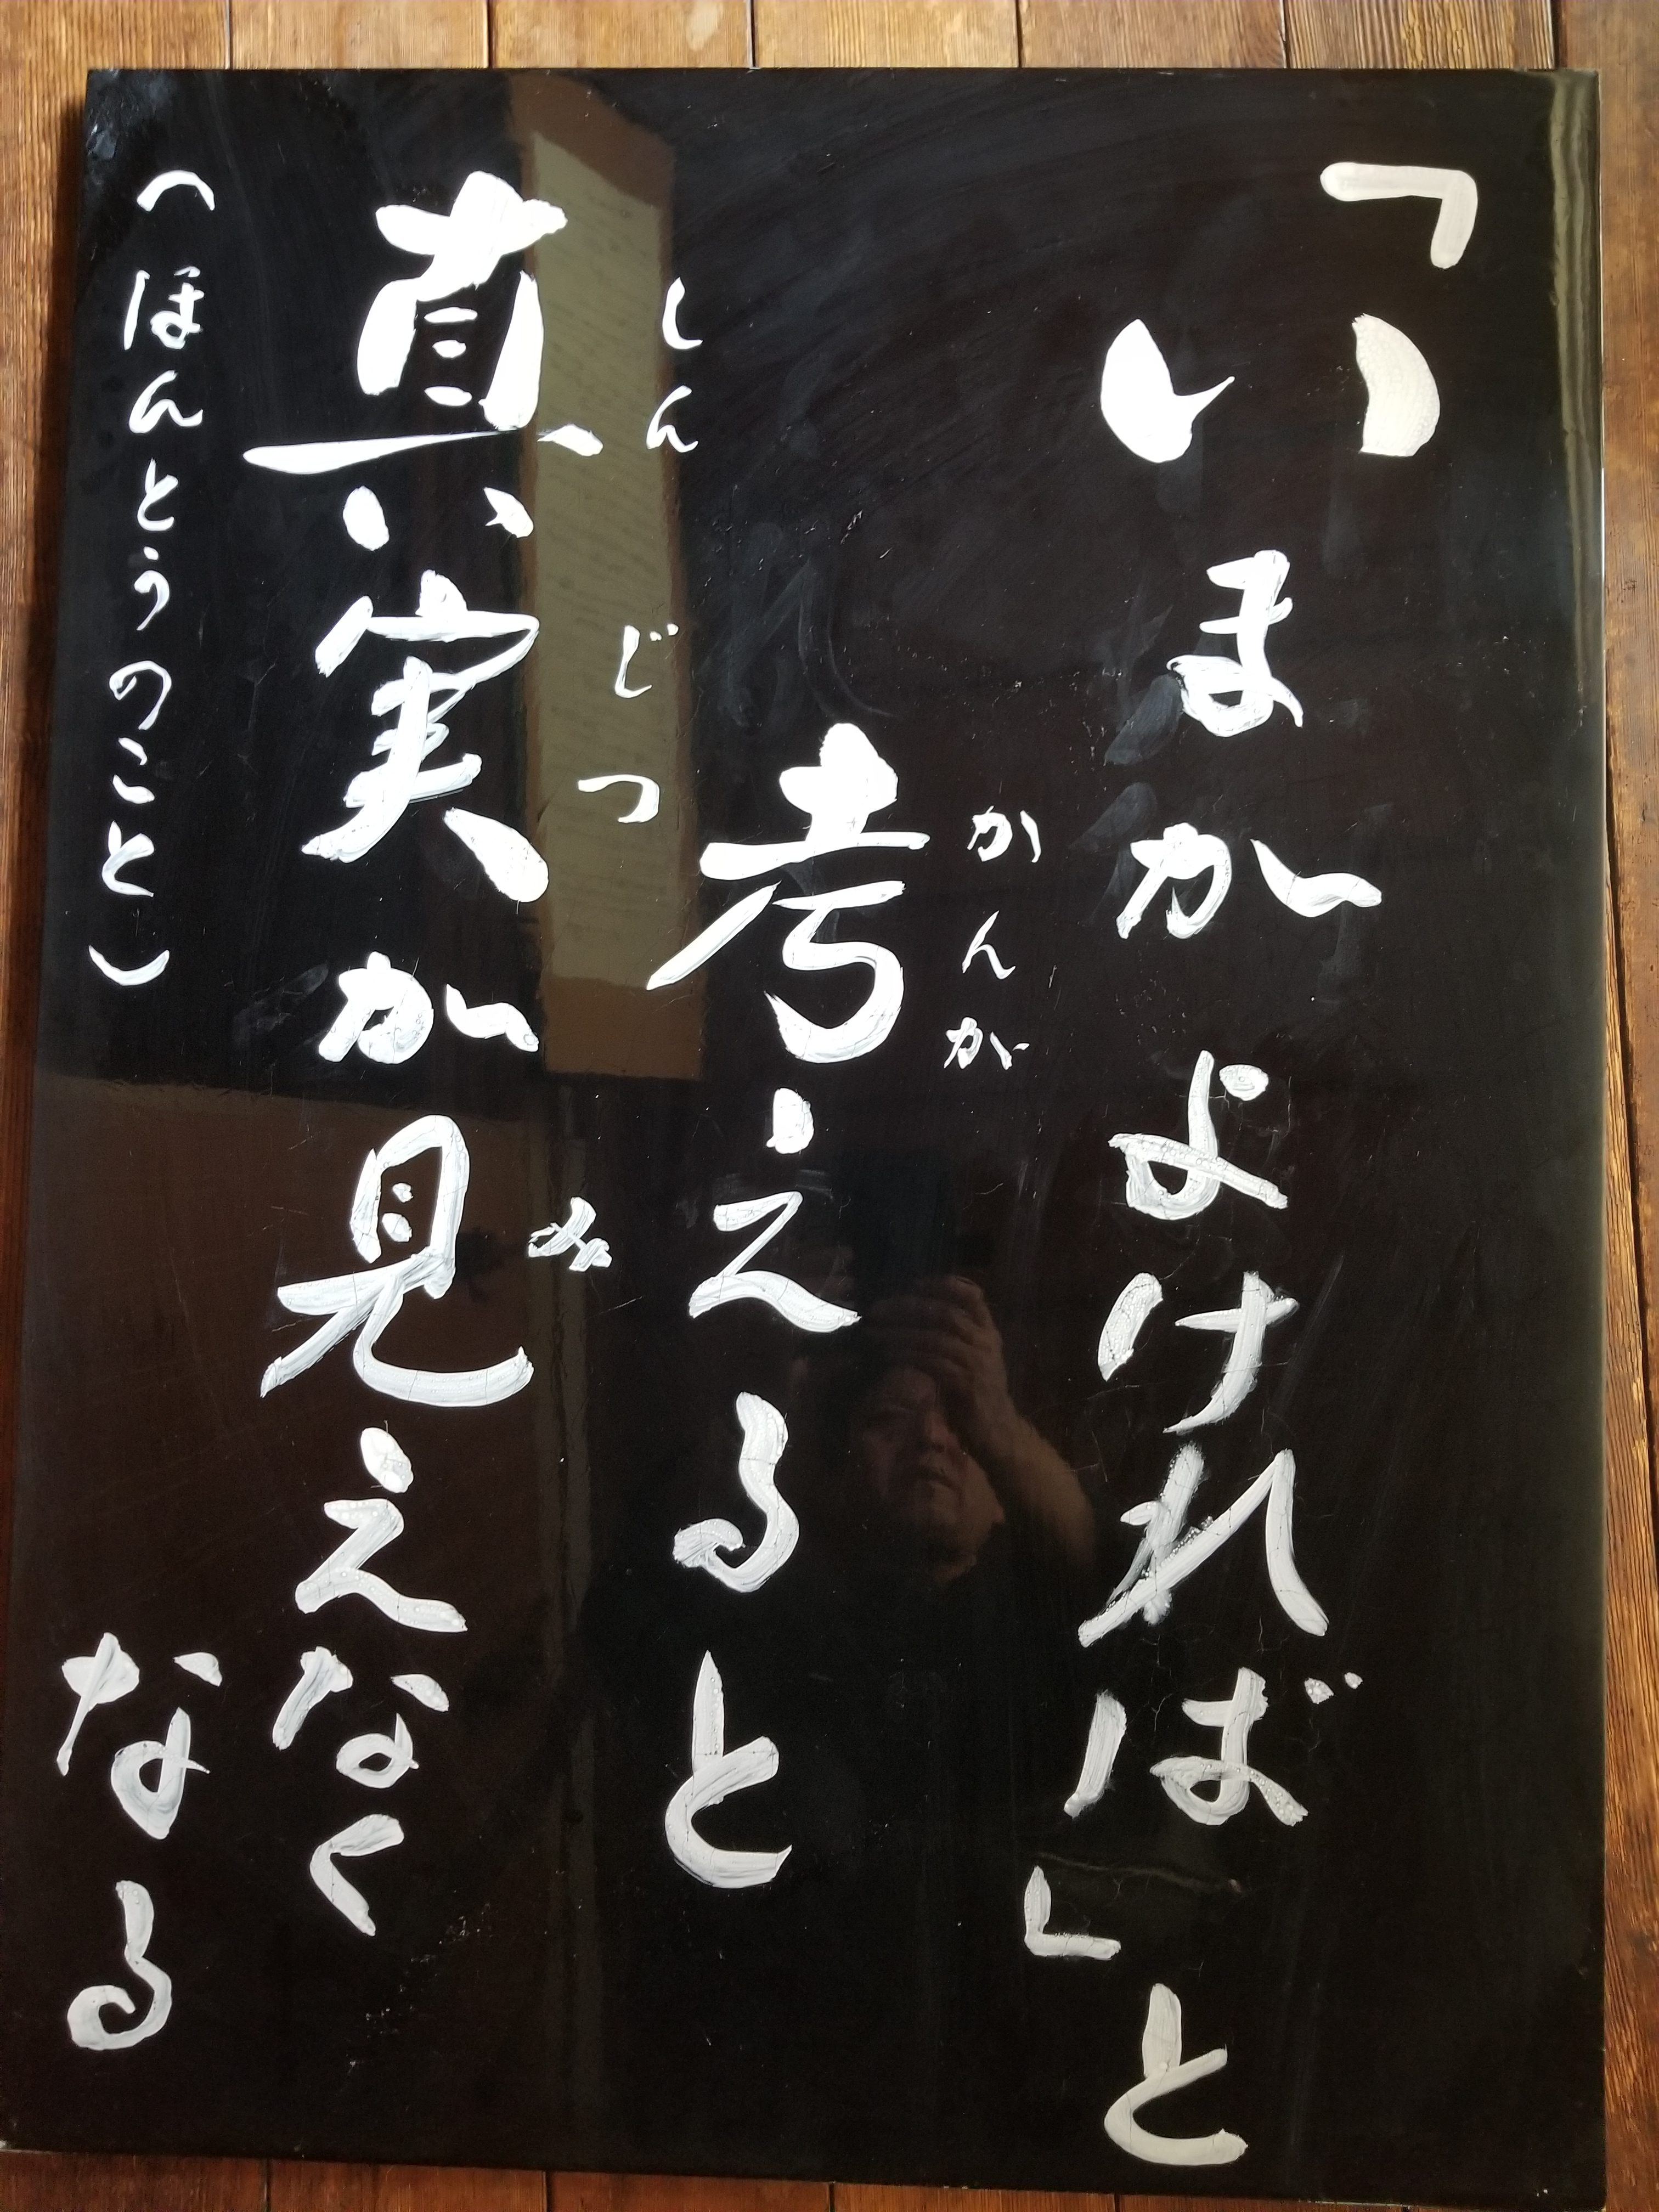 「いまがよければ」と
かんが
考えると
しんじつ み
真実が見えなく
(ほんとうのこと)
なる